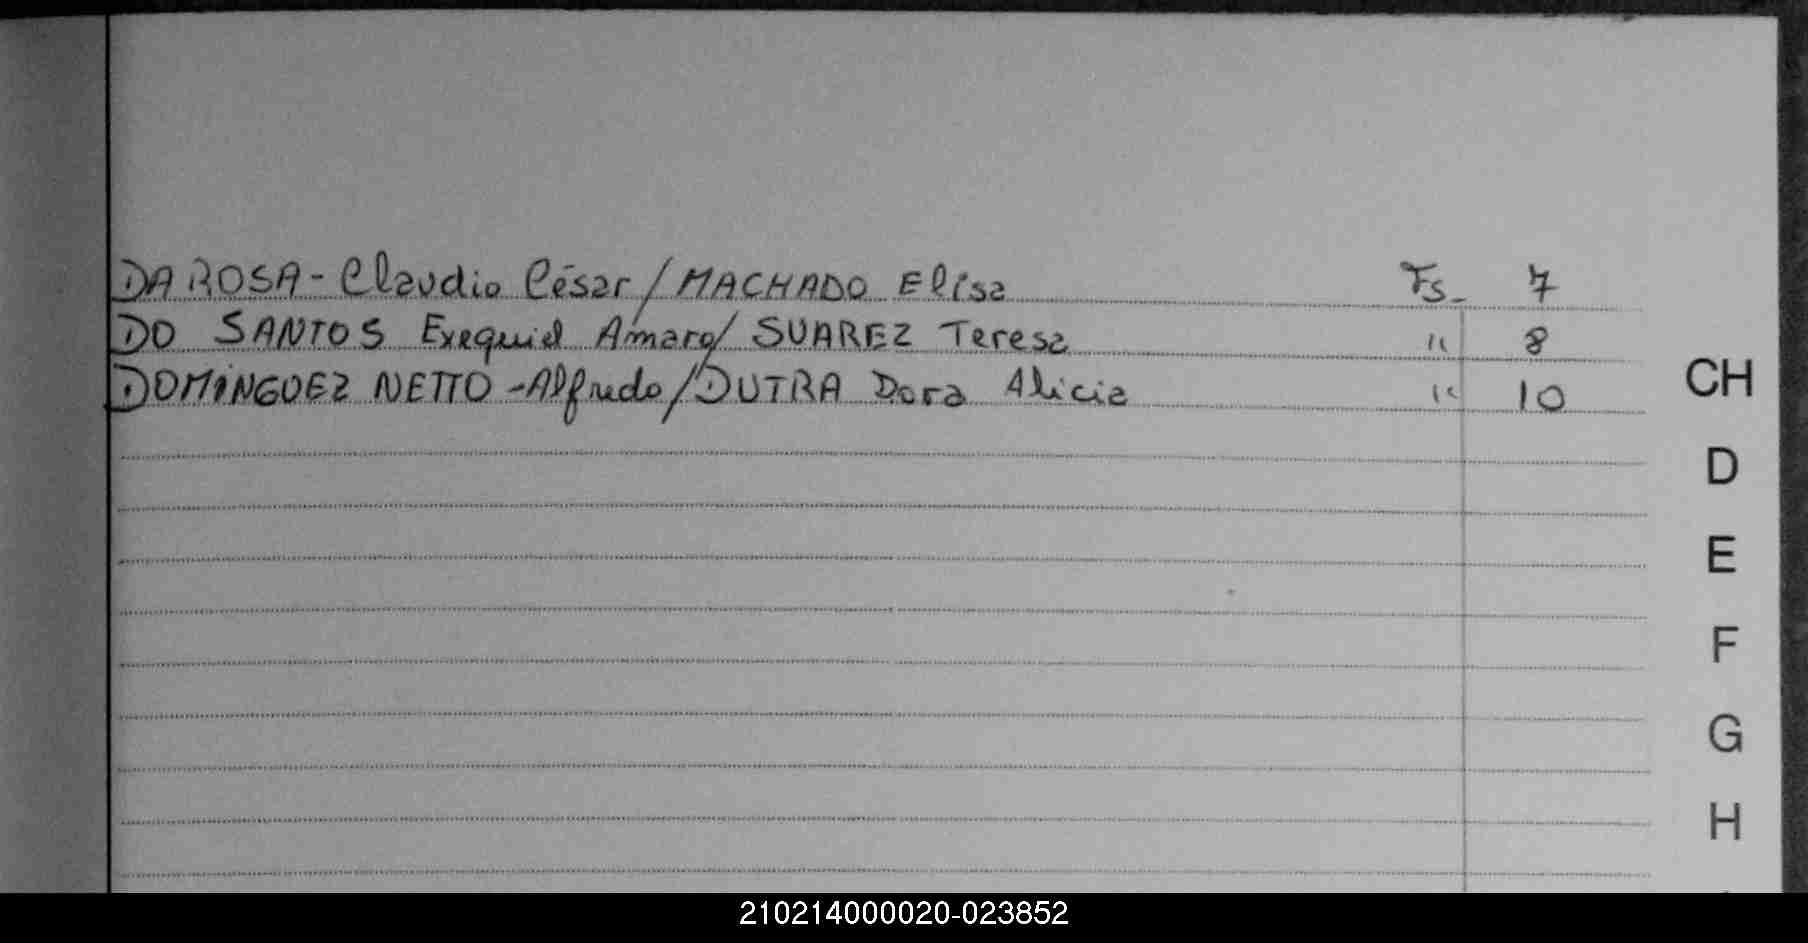 DA ROSA - Claudio César / MACHADO Elisa Fs_ 7
DO SANTOS Exequiel Amaro / SUAREZ Teresa " 8
DOMINGUEZ NETTO - Alfredo / DUTRA Dora Alicia " 10
CH
D
E
F
G
H
210214000020-023852